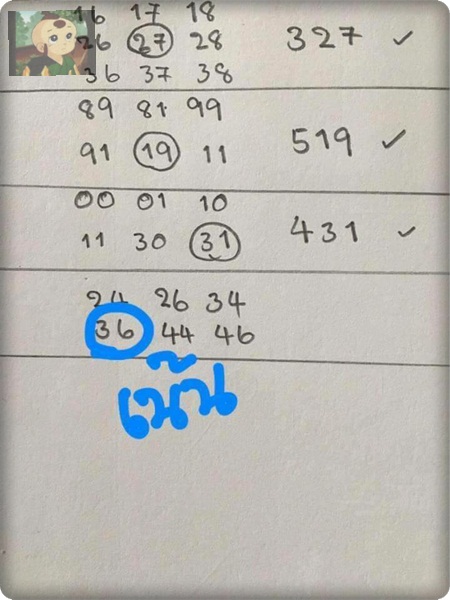 16 17 18
26 27 28 327 ✓
36 37 38
89 81 99
91 19 11 519 ✓
00 01 10
11 30 31 431 ✓
24 26 34
36 44 46
เน๊น